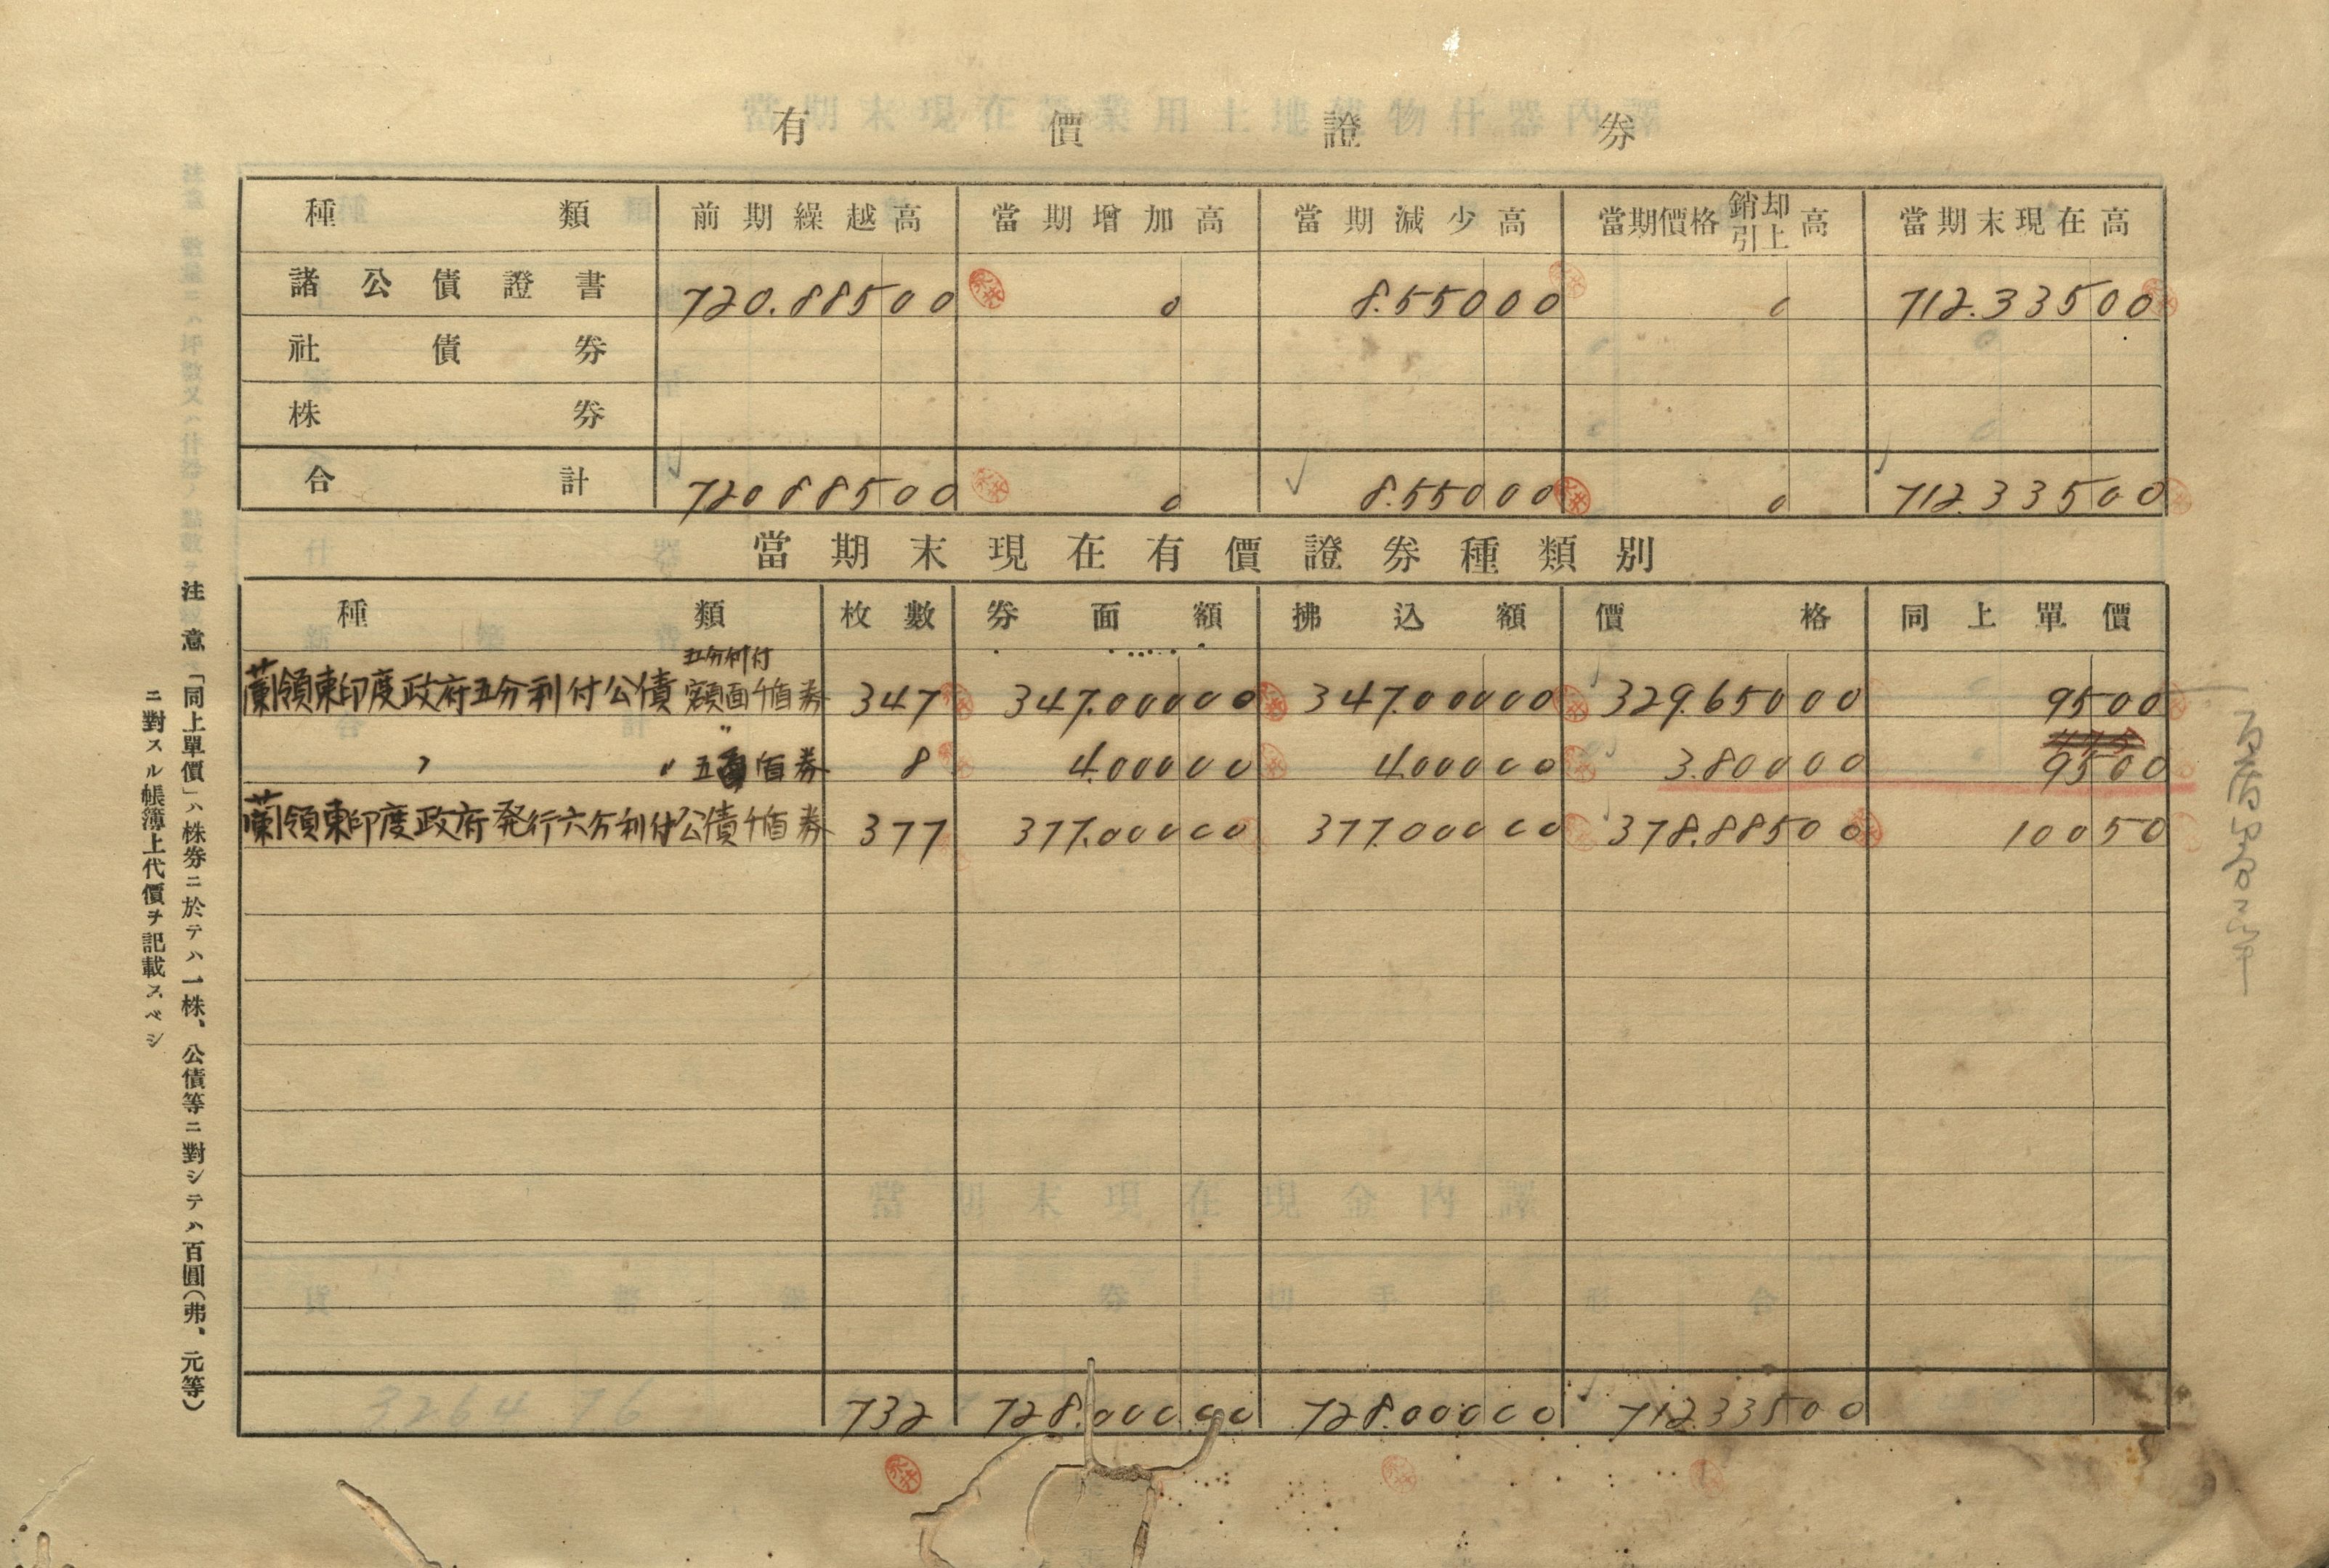 有價證券
種類 前期繰越高 當期增加高 當期減少高 當期價格銷却引上高 當期末現在高
諸公債證書 720.88500 0 8.55000 0 712.33500
社債券
株券
合計 720 88500 0 8.55000 0 712.33500
當期末現在有價證券種類別
種類 枚數 券面額 拂込額 價格 同上單價
五分利付
蘭領東印度政府五分利付公債 額面千盾券 347 347.00000 347.00000 329.65000 9500
〃 〃 五百盾券 8 4.00000 4.00000 3.80000 9500
蘭領東印度政府発行六分利付公債千盾券 377 377.00000 377.00000 378.88500 10050
732 728.00000 728.00000 712.33500
3264 76
注意「同上單價」ハ株券ニ於テハ一株、公債等ニ對シテハ百圓(弗、元等)
ニ對スル帳簿上代價ヲ記載スベシ